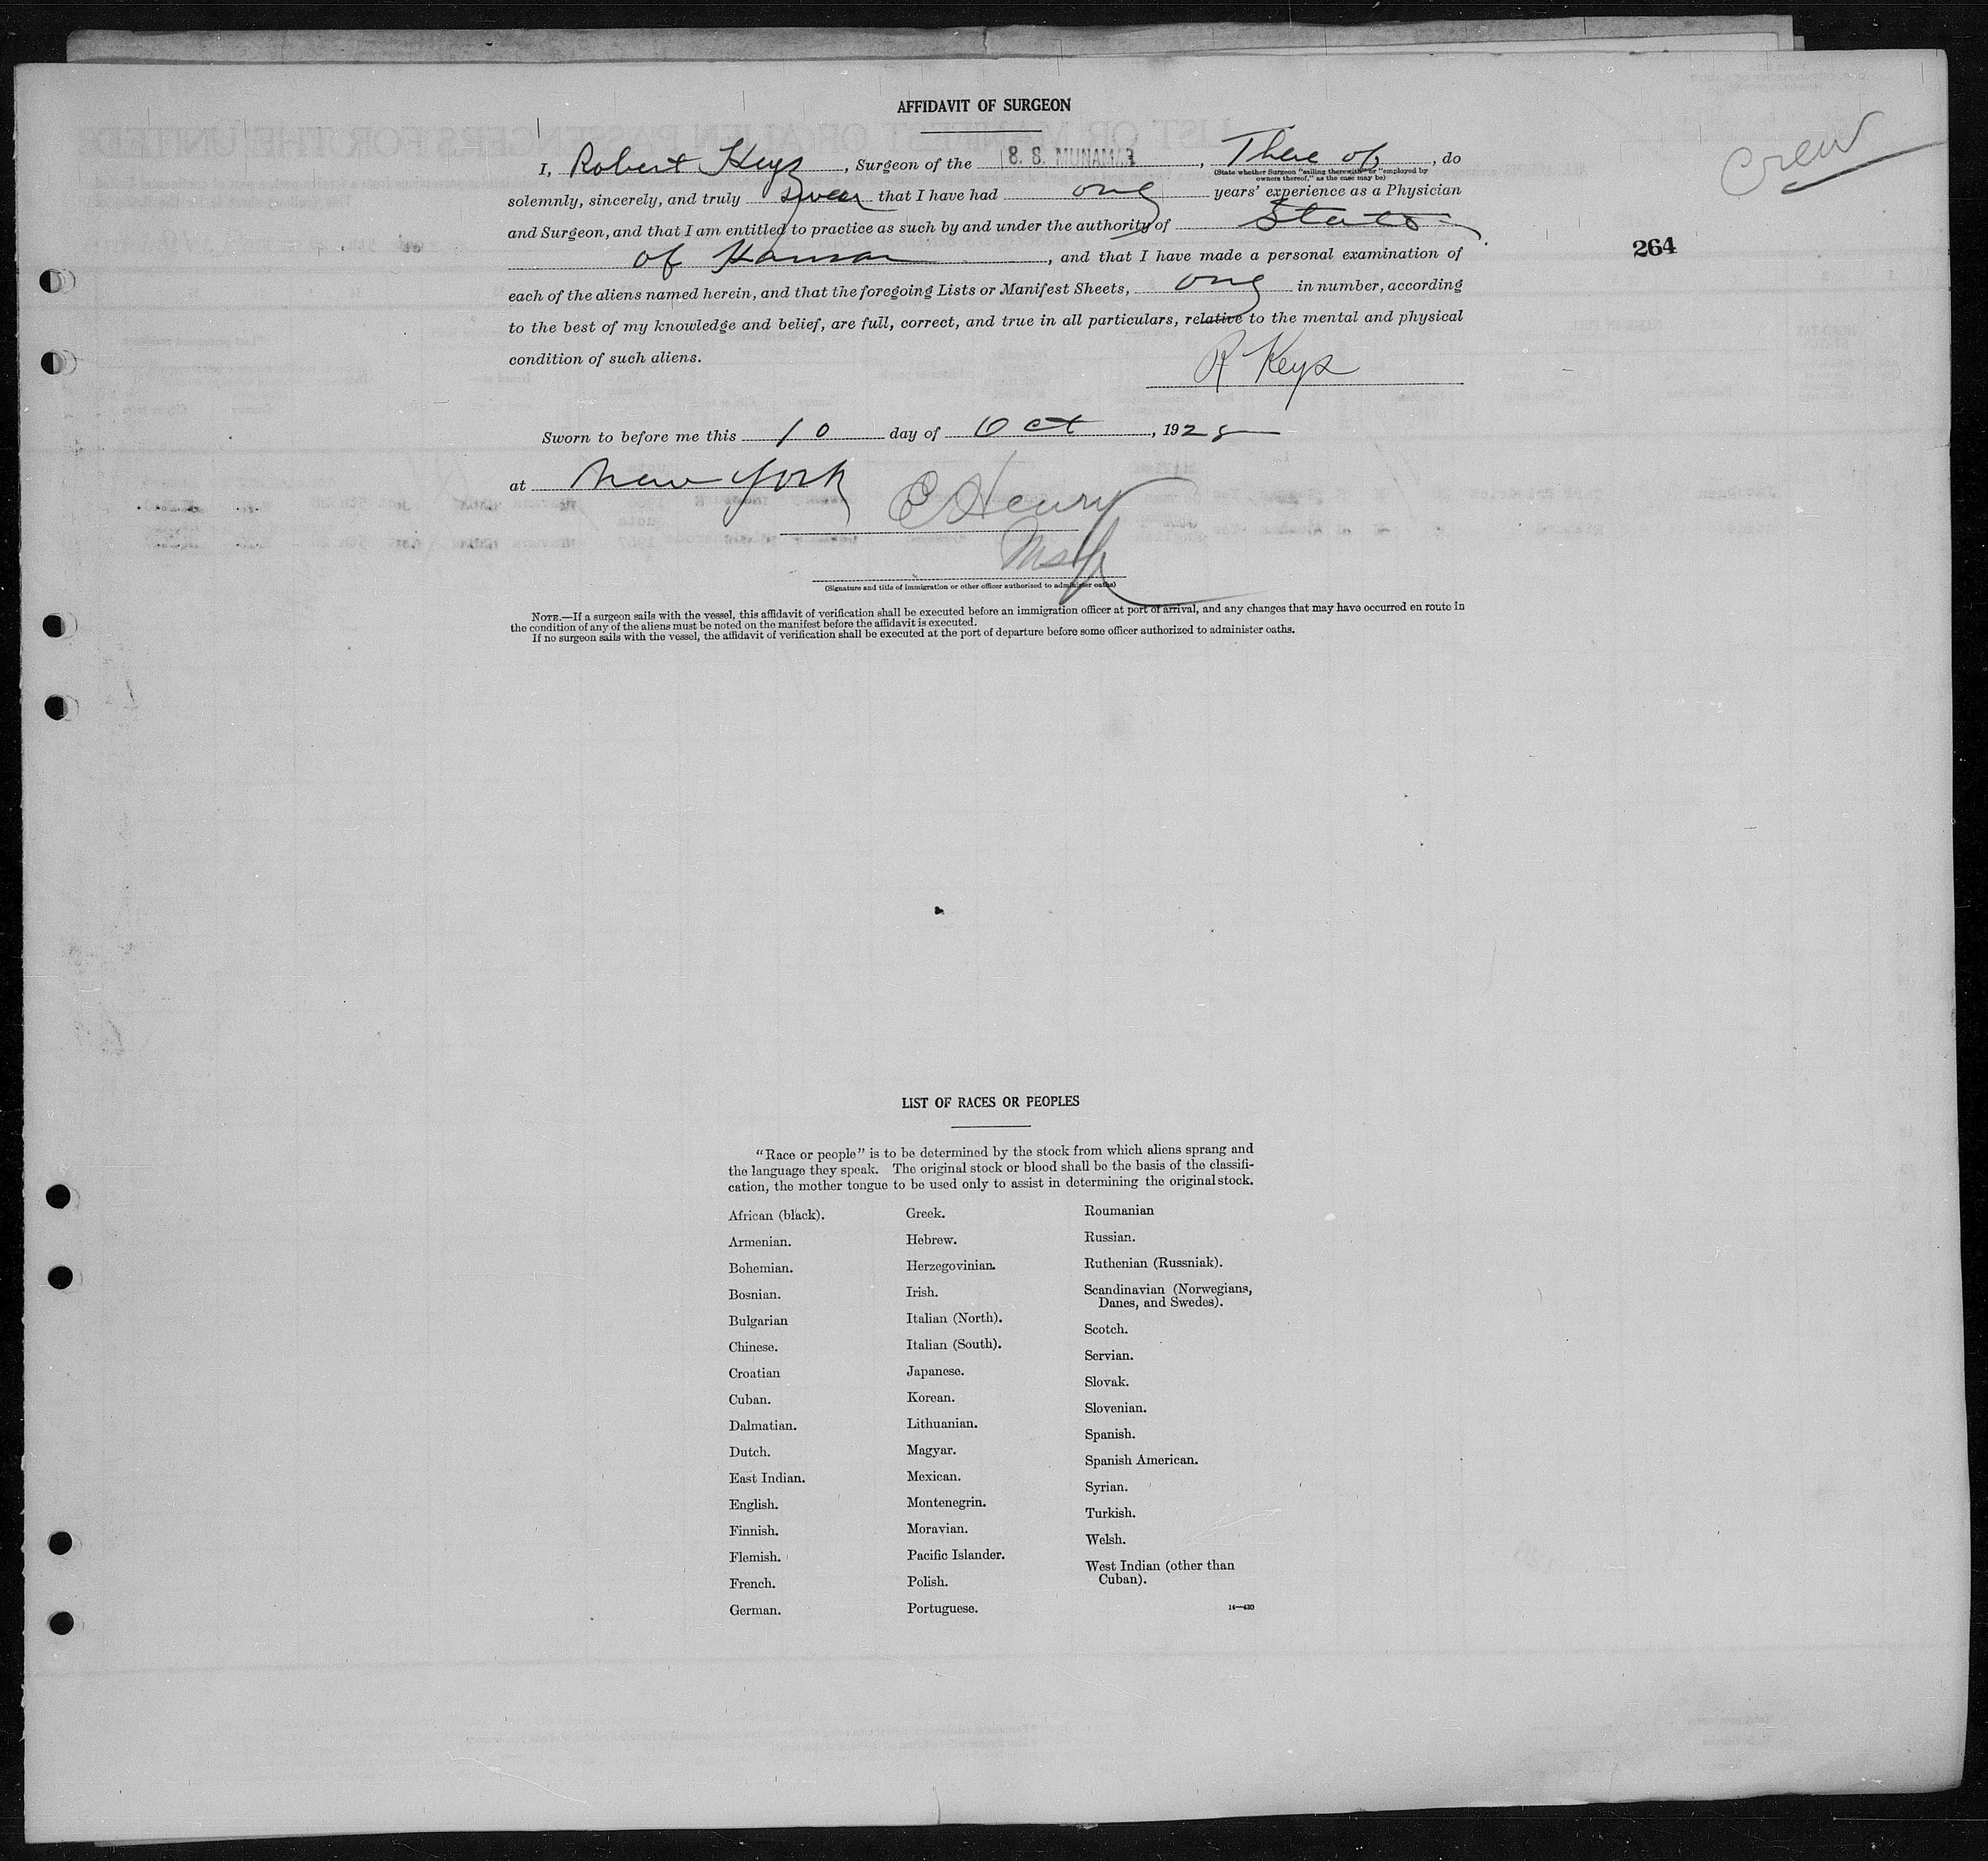 AFFIDAVIT OF SURGEON
Crew
I, Robert Keys, Surgeon of the S. S. MUNAMAR, There of, do
(State whether Surgeon "sailing therewith" or "employed by
owners thereof," as the case may be)
solemnly, sincerely, and truly swear that I have had one years' experience as a Physician
and Surgeon, and that I am entitled to practice as such by and under the authority of State
264
of Kansas, and that I have made a personal examination of
each of the aliens named herein, and that the foregoing Lists or Manifest Sheets, one in number, according
to the best of my knowledge and belief, are full, correct, and true in all particulars, relative to the mental and physical
condition of such aliens.
R Keys
Sworn to before me this 10 day of Oct, 1928
at New York
E Henry
(Signature and title of immigration or other officer authorized to administer oaths)
NOTE.—If a surgeon sails with the vessel, this affidavit of verification shall be executed before an immigration officer at port of arrival, and any changes that may have occurred en route in
the condition of any of the aliens must be noted on the manifest before the affidavit is executed.
If no surgeon sails with the vessel, the affidavit of verification shall be executed at the port of departure before some officer authorized to administer oaths.
LIST OF RACES OR PEOPLES
"Race or people" is to be determined by the stock from which aliens sprang and
the language they speak. The original stock or blood shall be the basis of the classifi-
cation, the mother tongue to be used only to assist in determining the original stock.
African (black).
Armenian.
Bohemian.
Bosnian.
Bulgarian
Chinese.
Croatian
Cuban.
Dalmatian.
Dutch.
East Indian.
English.
Finnish.
Flemish.
French.
German.
Greek.
Hebrew.
Herzegovinian.
Irish.
Italian (North).
Italian (South).
Japanese.
Korean.
Lithuanian.
Magyar.
Mexican.
Montenegrin.
Moravian.
Pacific Islander.
Polish.
Portuguese.
Roumanian
Russian.
Ruthenian (Russniak).
Scandinavian (Norwegians,
Danes, and Swedes).
Scotch.
Servian.
Slovak.
Slovenian.
Spanish.
Spanish American.
Syrian.
Turkish.
Welsh.
West Indian (other than
Cuban).
14—430